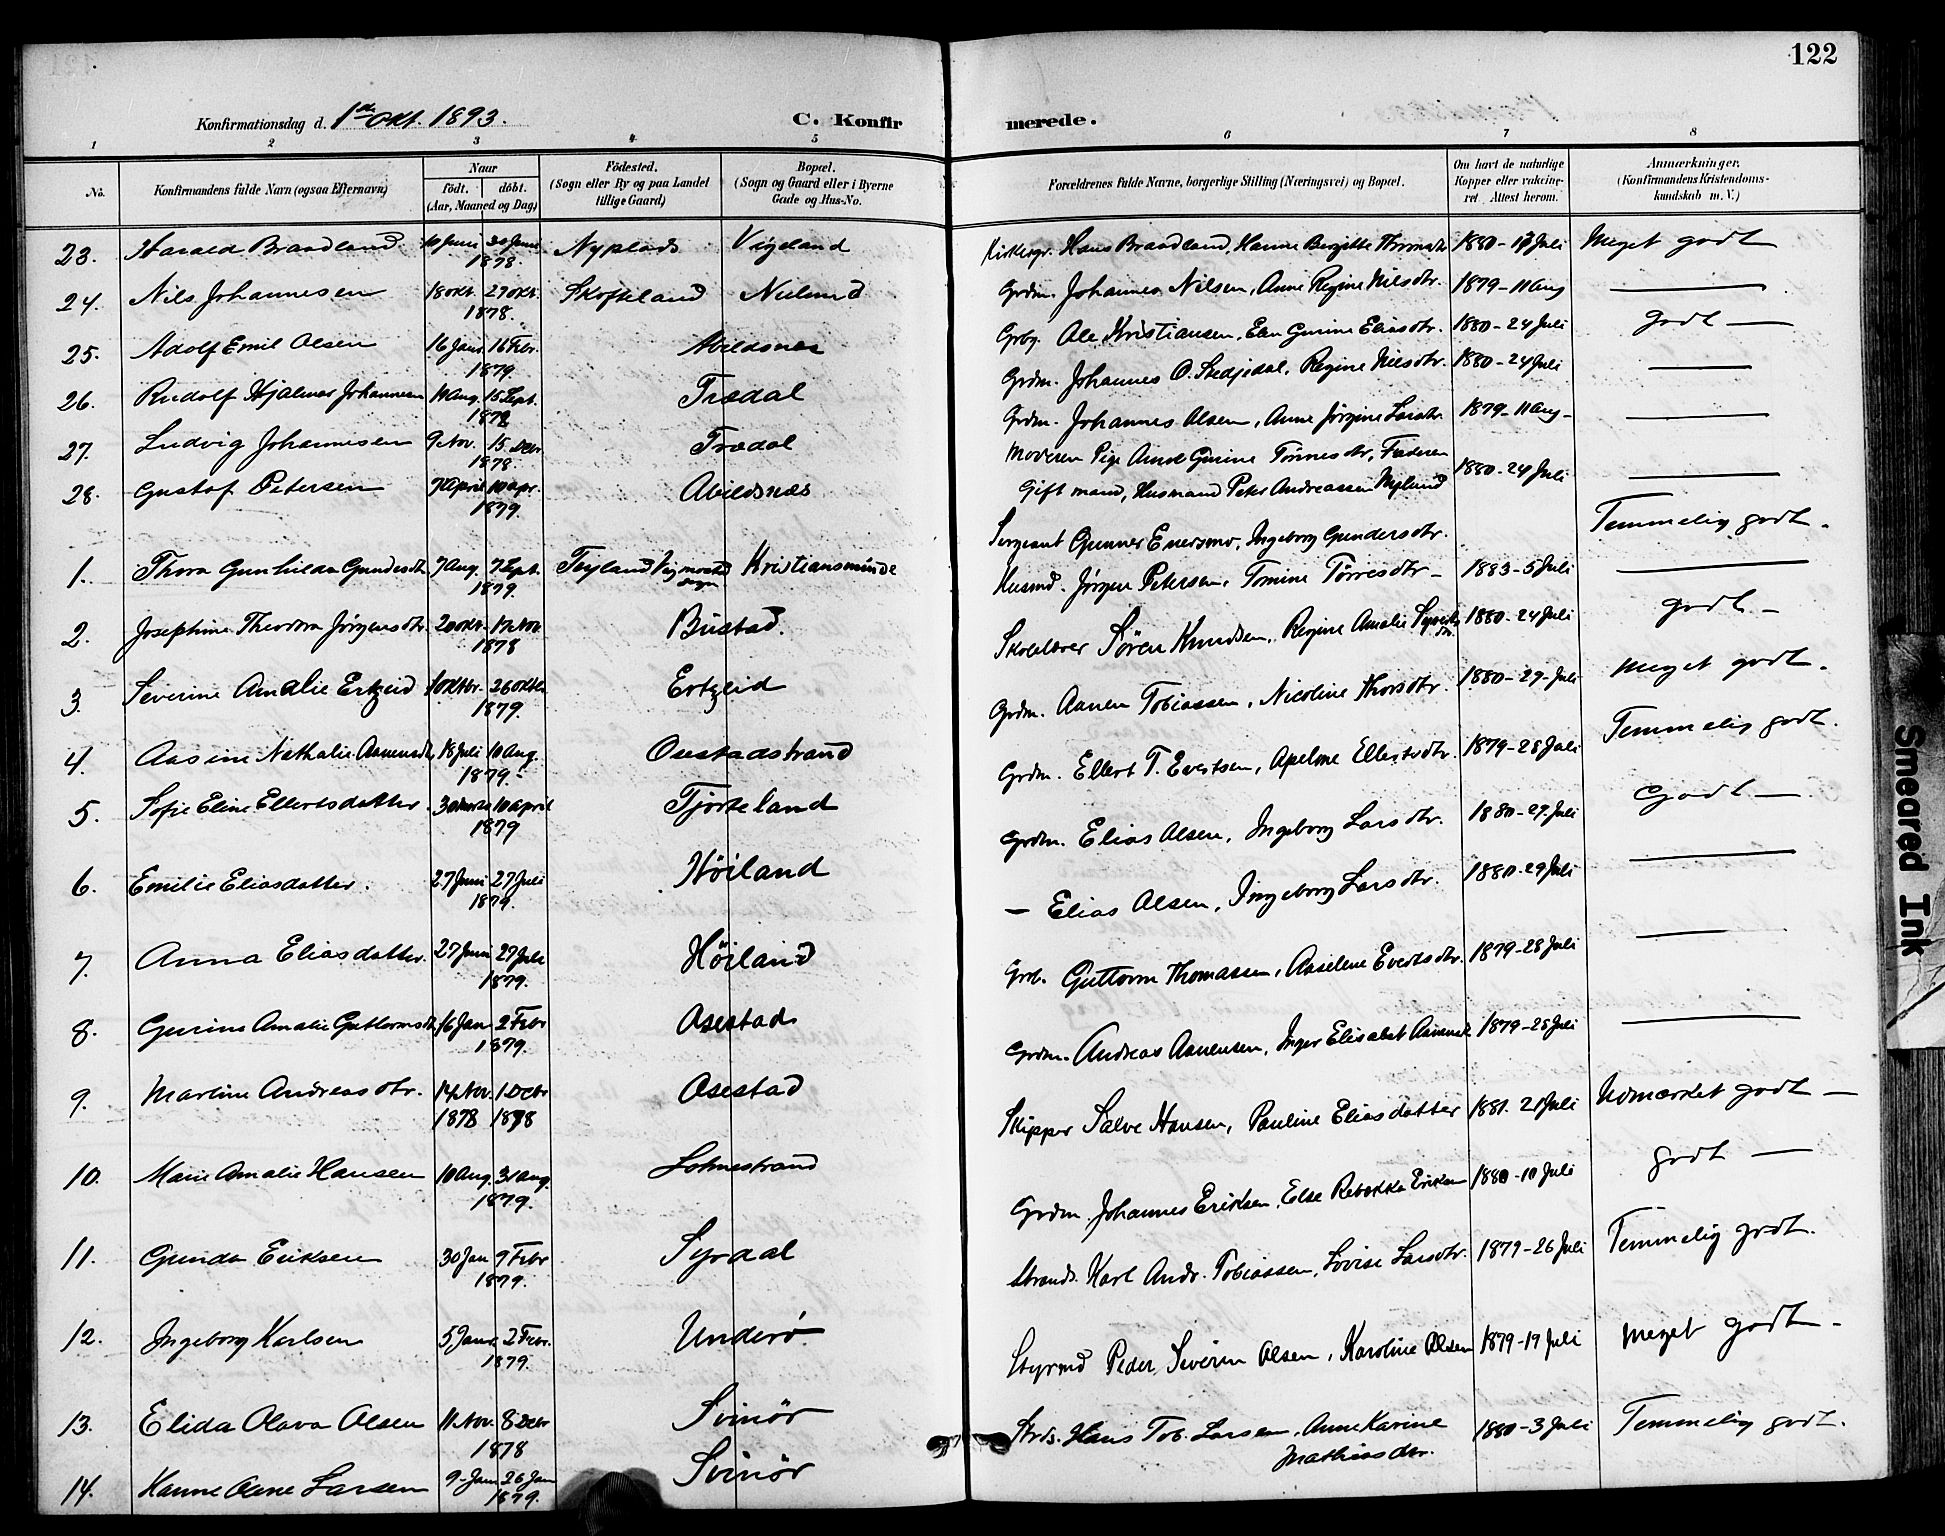 122
Konfirmationsdag d. 1ste Okt. 1893. C. Konfirmerede.
1 2 3 4 5 6 7 8
No. Konfirmandens fulde Navn (ogsaa Efternavn) Naar født. døbt. (Aar, Maaned og Dag) Fødested. (Sogn eller By og paa Landet tillige Gaard) Bopæl. (Sogn og Gaard eller i Byerne Gade og Hus-No. Forældrenes fulde Navne, borgerlige Stilling (Næringsvei) og Bopæl. Om havt de naturlige Kopper eller vakcineret. Attest herom. Anmærkninger. (Konfirmandens Kristendomskundskab m. V.)
23. Harald Braadland 10 Juni 30 Juni 1878. Nyplads Vigeland Kirkesgr. Hans Braadland, Hanne Bergitte 1880-17 Juli Meget godt
24. Nils Johannesen 18 Okt. 27 Okt. 1878. Skofteland Grdm. Johannes Nilsen, Anne Regine Nilsdtr. 1879-11 Aug —
25. Adolf Emil Olsen 16 Janr. 16 Febr. 1879. Abildsnes Grbg. Ole Kristiansen, Elen Gurine Eliasdtr. 1880-24 Juli godt —
26. Rudolf Hjalmar Johannesen 11 Aug. 15 Sept. 1878 Trædal Grdm. Johannes O. Stedjedal, Regine Nilsdtr. 1880-24 Juli —
27. Ludvig Johannesen 9 Nov. 15 Decbr. 1878. Trædal Grdm. Johannes Olsen, Anne Jørgine Larsdtr. 1879-11 Aug- —
28. Gustaf Petersen 7 April 10 apr. 1879. Abildsnæs Moderen Pige Gurine Tønnesdtr, Faderen
Gift mand, Husmand Peter Andreassen Nylund 1880-24 Juli —
1. Thora Gunhilda Gundersdtr 7 Aug. 7 Sept. 1879. Vigmostad sogn Kristiansminde Sergeant Gunner Enersmo, Ingeborg Gundersdtr. Temmelig godt.
2. Josephine Theodora Jørgensdtr. 20 Okt. 17 Nov. 1878 Bustad. Husmd. Jørgen Petersen, Tomine Tørresdtr - 1883-5 Juli —
3. Severine Amalie Ertzeid 1 Oktbr. 26 Oktbr. 1879. Ertzeid Skolelærer Søren Knudsen, Regine Amalie 1880-24 Juli godt. -
4. Aasine Nathalie Aanensdtr 18 Juli 10 Aug. 1879. Osestadstrand Grdm. Aanen Tobiassen, Nicoline Thorsdtr. 1880-29-Juli meget godt.
5. Sofie Eline Ellertsdatter. 30 Marts 10 April 1879 Tjorteland Grdm. Ellert T. Evertsen, Apelone Ellertsdtr. 1879-28 Juli Temmelig godt.
6. Emilie Eliasdatter. 27 Juni 27 Juli 1879. Høiland Grdm. Elias Olsen, Ingeborg Larsdtr. 1880-29. Juli Godt —
7. Anna Eliasdatter. 27 Juni 27 Juli 1879. Høiland — Elias Olsen, Ingeborg Larsdtr. 1880-29 Juli —
8. Gurine Amalie Guttormsdtr 16 Jan 2 Febr 1879. Osestad Grb. Guttorm Thomassen, Asselene Evertsdtr. 1879-28 Juli —
9. Martine Andreasdtr. 14 Nov. 1878 1 Decbr 1878 Osestad Grdm. Andreas Aanensen, Inger Elisabet 1879-28 Juli —
10. Marie Amalie Hansen 10 Aug. 31 Aug. 1879. Lohnestrand Skipper Salve Hansen, Pauline Eliasdatter 1881. 21 Juli Udmærket godt —
11. Gunda Eriksen 30 Jan 9 Febr 1879. Syrdal Grdm. Johannes Eriksen, Else Rebekka Eriksen 1880-10 Juli godt —
12. Ingeborg Karlsen 5 Janr. 2 Febr. 1879. Underø Strands. Karl Andr. Tobiassen, Lovise Larsdtr. 1879-26 Juli Temmelig godt.
13. Elida Olava Olsen 11 Nov. 8 Decbr 1878 Svinør Styrmd Peder Severin Olsen, Karoline Olsen 1879-19 Juli meget godt -
14. Hanne Oline Larsen 9-Jan 26 Jan 1879. Svinør Strds. Hans Tob. Larsen, Anne Karine
Mathiasdtr. 1880-3 Juli Temmelig godt.
Smeared Ink